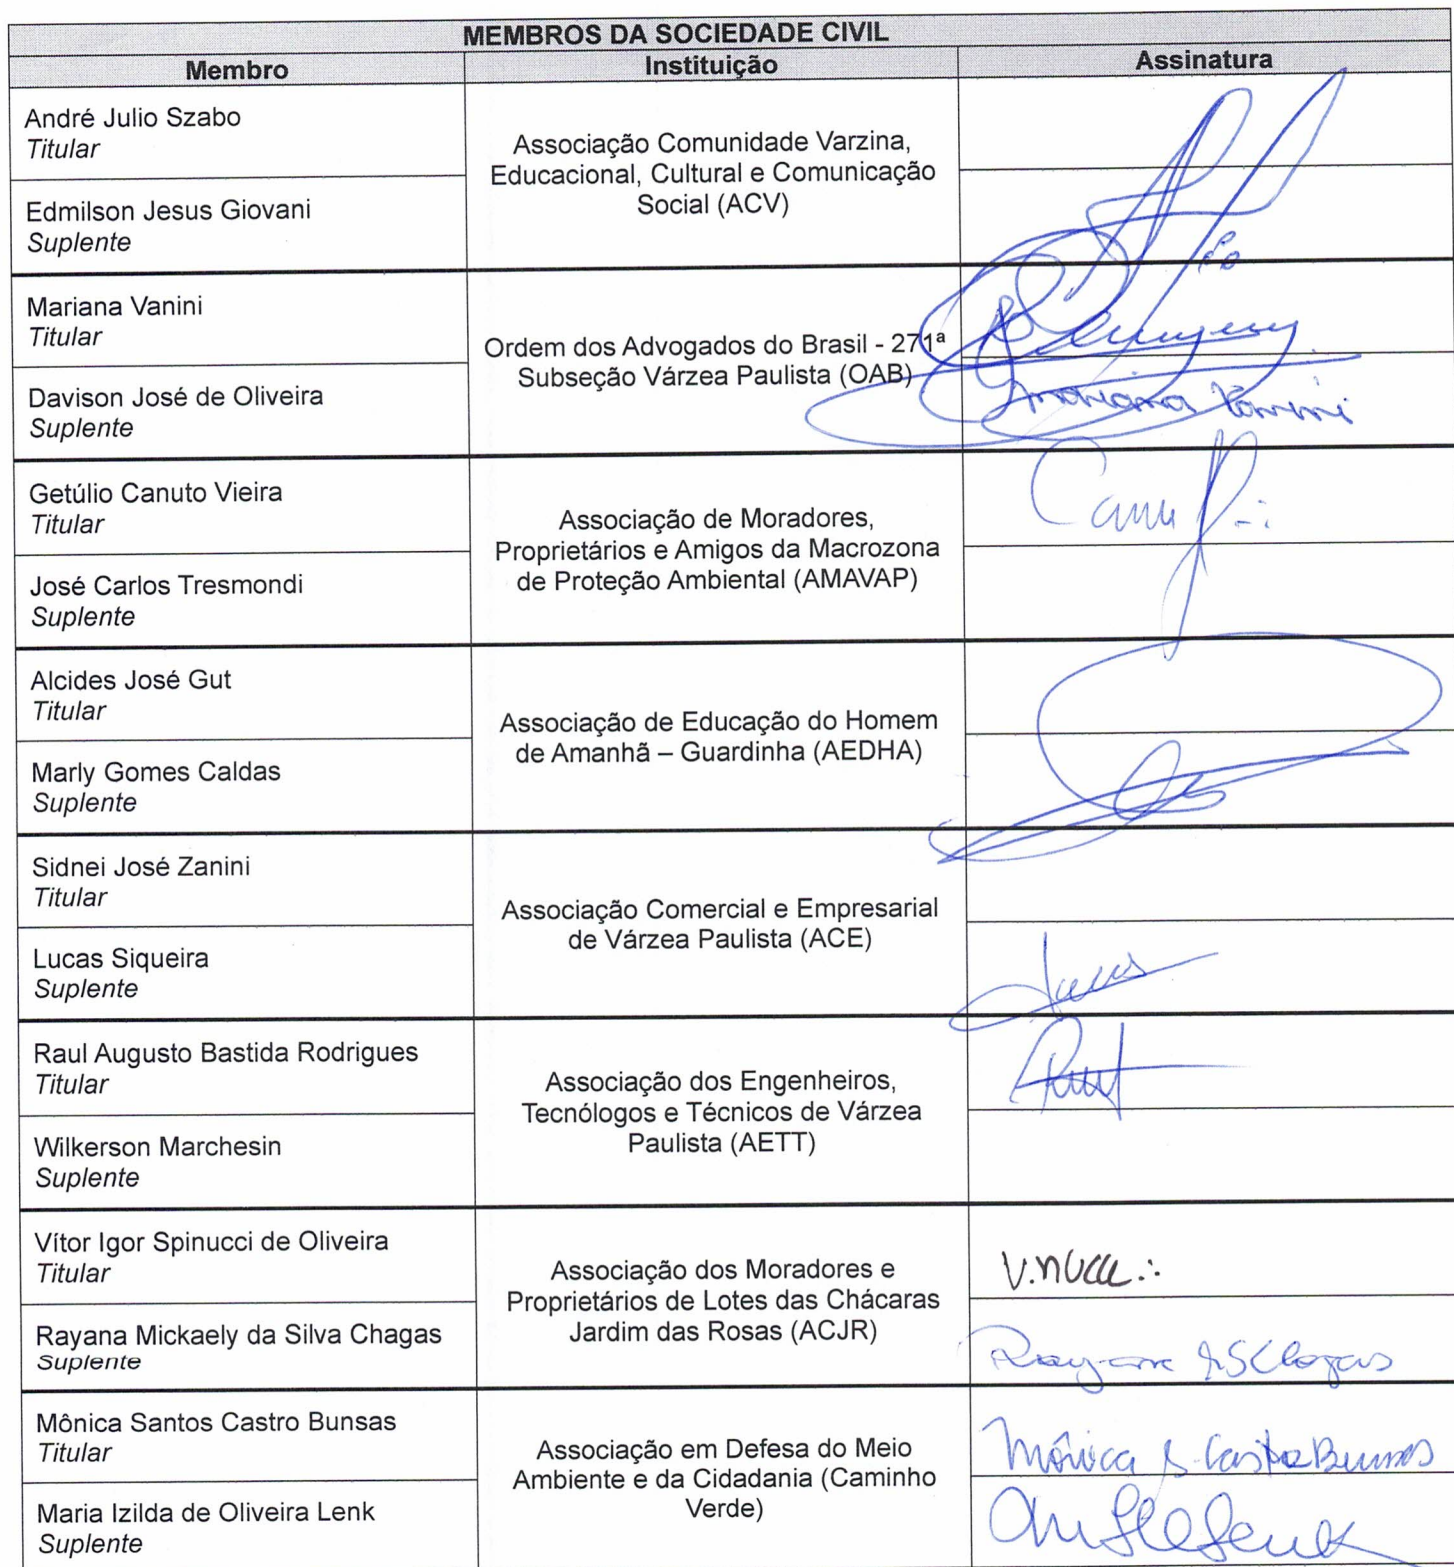 MEMBROS DA SOCIEDADE CIVIL
Membro Instituição Assinatura
André Julio Szabo
Titular
Associação Comunidade Varzina,
Educacional, Cultural e Comunicação
Social (ACV)
Edmilson Jesus Giovani
Suplente
Mariana Vanini
Titular
Ordem dos Advogados do Brasil - 271ª
Subseção Várzea Paulista (OAB)
Mariana Vanini
Davison José de Oliveira
Suplente
Getúlio Canuto Vieira
Titular
Associação de Moradores,
Proprietários e Amigos da Macrozona
de Proteção Ambiental (AMAVAP)
José Carlos Tresmondi
Suplente
Alcides José Gut
Titular
Associação de Educação do Homem
de Amanhã – Guardinha (AEDHA)
Marly Gomes Caldas
Suplente
Sidnei José Zanini
Titular
Associação Comercial e Empresarial
de Várzea Paulista (ACE)
Lucas Siqueira
Suplente
Lucas
Raul Augusto Bastida Rodrigues
Titular
Associação dos Engenheiros,
Tecnólogos e Técnicos de Várzea
Paulista (AETT)
Raul
Wilkerson Marchesin
Suplente
Vítor Igor Spinucci de Oliveira
Titular
Associação dos Moradores e
Proprietários de Lotes das Chácaras
Jardim das Rosas (ACJR)
Rayana Mickaely da Silva Chagas
Suplente
Mônica Santos Castro Bunsas
Titular
Associação em Defesa do Meio
Ambiente e da Cidadania (Caminho
Verde)
Mônica S. Castro Bunsas
Maria Izilda de Oliveira Lenk
Suplente